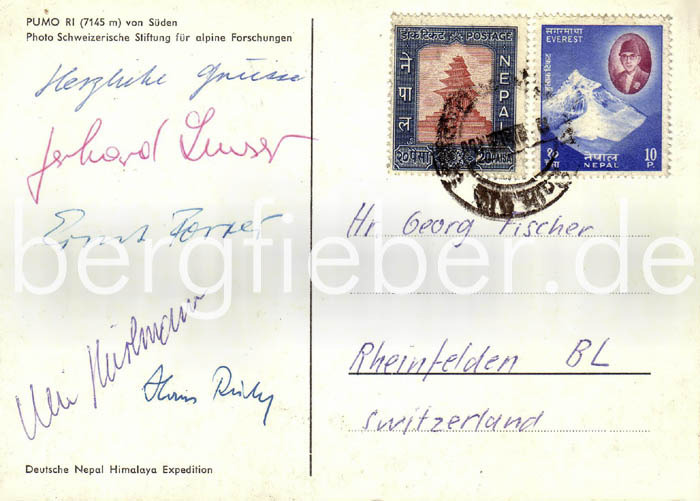 PUMO RI (7145 m) von Süden
Photo Schweizerische Stiftung für alpine Forschungen
Herzliche Grüsse
Gerhard Lenser
Ernst Forrer
Hans Rüdy
Deutsche Nepal Himalaya Expedition
POSTAGE
नेपाल
NEPAL
सगरमाथा
EVEREST
१० पै
नेपाल
NEPAL
10 P.
Hr Georg Fischer
Rheinfelden BL
Switzerland
bergfieber.de